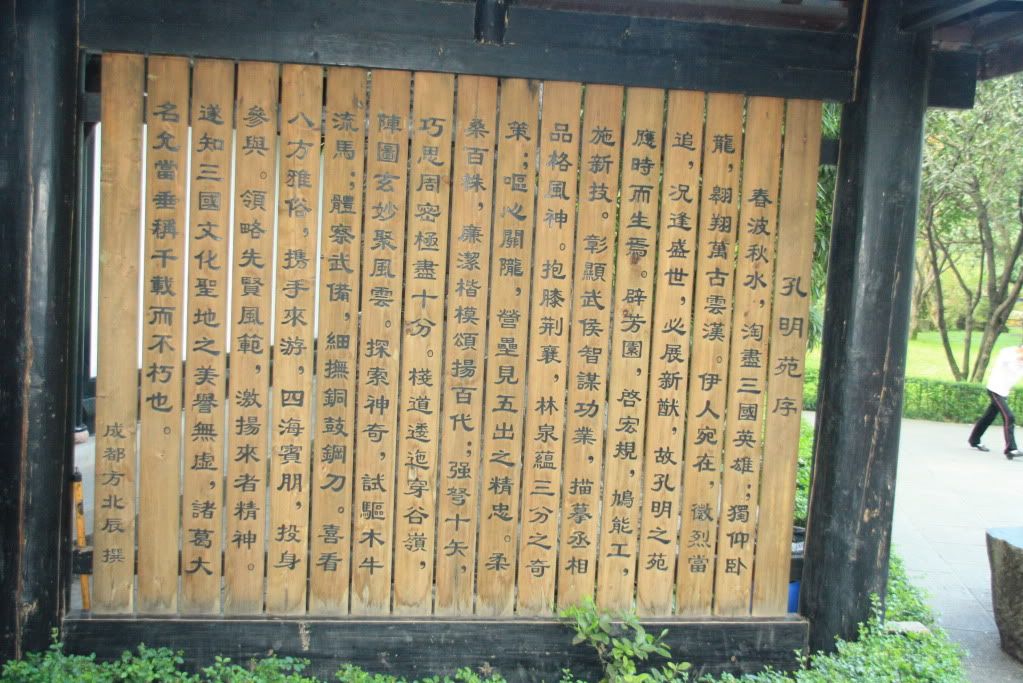 孔明苑序
春波秋水，淘盡三國英雄；獨仰卧
龍，翱翔萬古雲漢。伊人宛在，徽烈當
追，况逢盛世，必展新猷，故孔明之苑
應時而生焉。辟芳園，啓宏規，鳩能工，
施新技。彰顯武侯智謀功業，描摹丞相
品格風神。抱膝荆襄，林泉蘊三分之奇
策；嘔心關隴，營壘見五出之精忠。柔
桑百株，廉潔楷模頌揚百代；强弩十矢，
巧思周密極盡十分。棧道逶迤穿谷嶺，
陣圖玄妙聚風雲。探索神奇，試驅木牛
流馬；體察武備，細撫銅鼓鋼刀。喜看
八方雅俗，携手來游，四海賓朋，投身
參與。領略先賢風範，激揚來者精神。
遂知三國文化聖地之美譽無虛，諸葛大
名允當垂稱千載而不朽也。
成都方北辰 撰